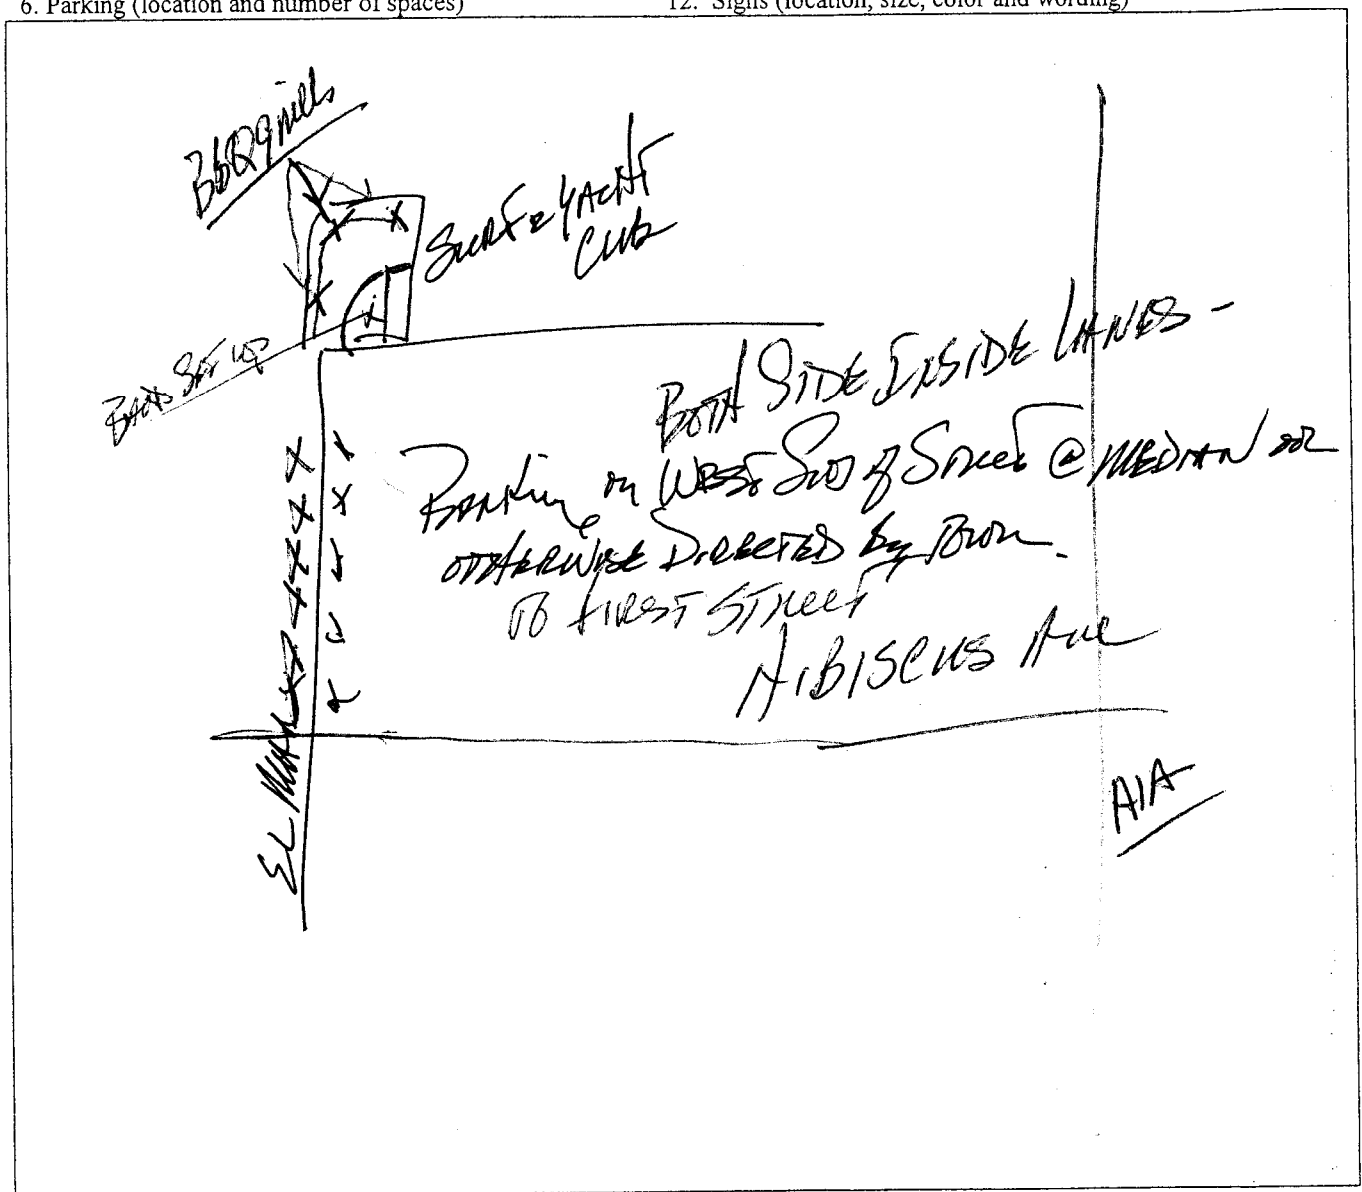 6. Parking (location and number of spaces)
12. Signs (location, size, color and wording)
BBQ grills
SURF & YACHT
Club
BAND SET UP
BOTH SIDE INSIDE LANES -
Parking on WEST Side of Street @ MEDIAN or
OTHERWISE DIRECTED by Town.
TO FIRST STREET
HIBISCUS Ave
EL MAR
A1A